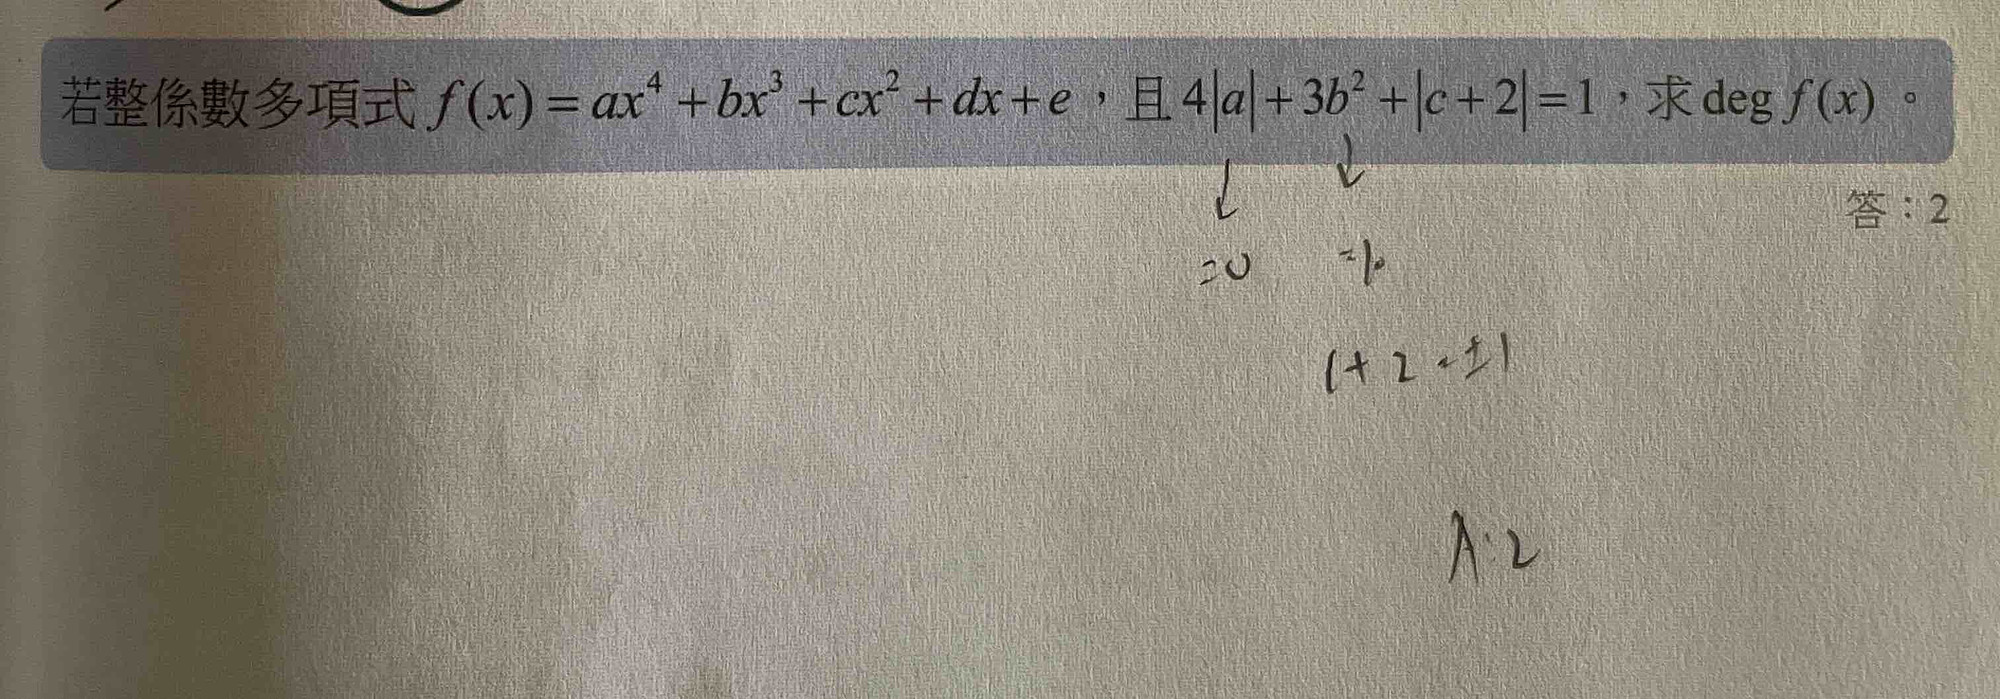 若整係數多項式 f(x) = ax⁴ + bx³ + cx² + dx + e，且 4|a| + 3b² + |c + 2| = 1，求 deg f(x)。
答：2
=0
+2 = ±1
A:2